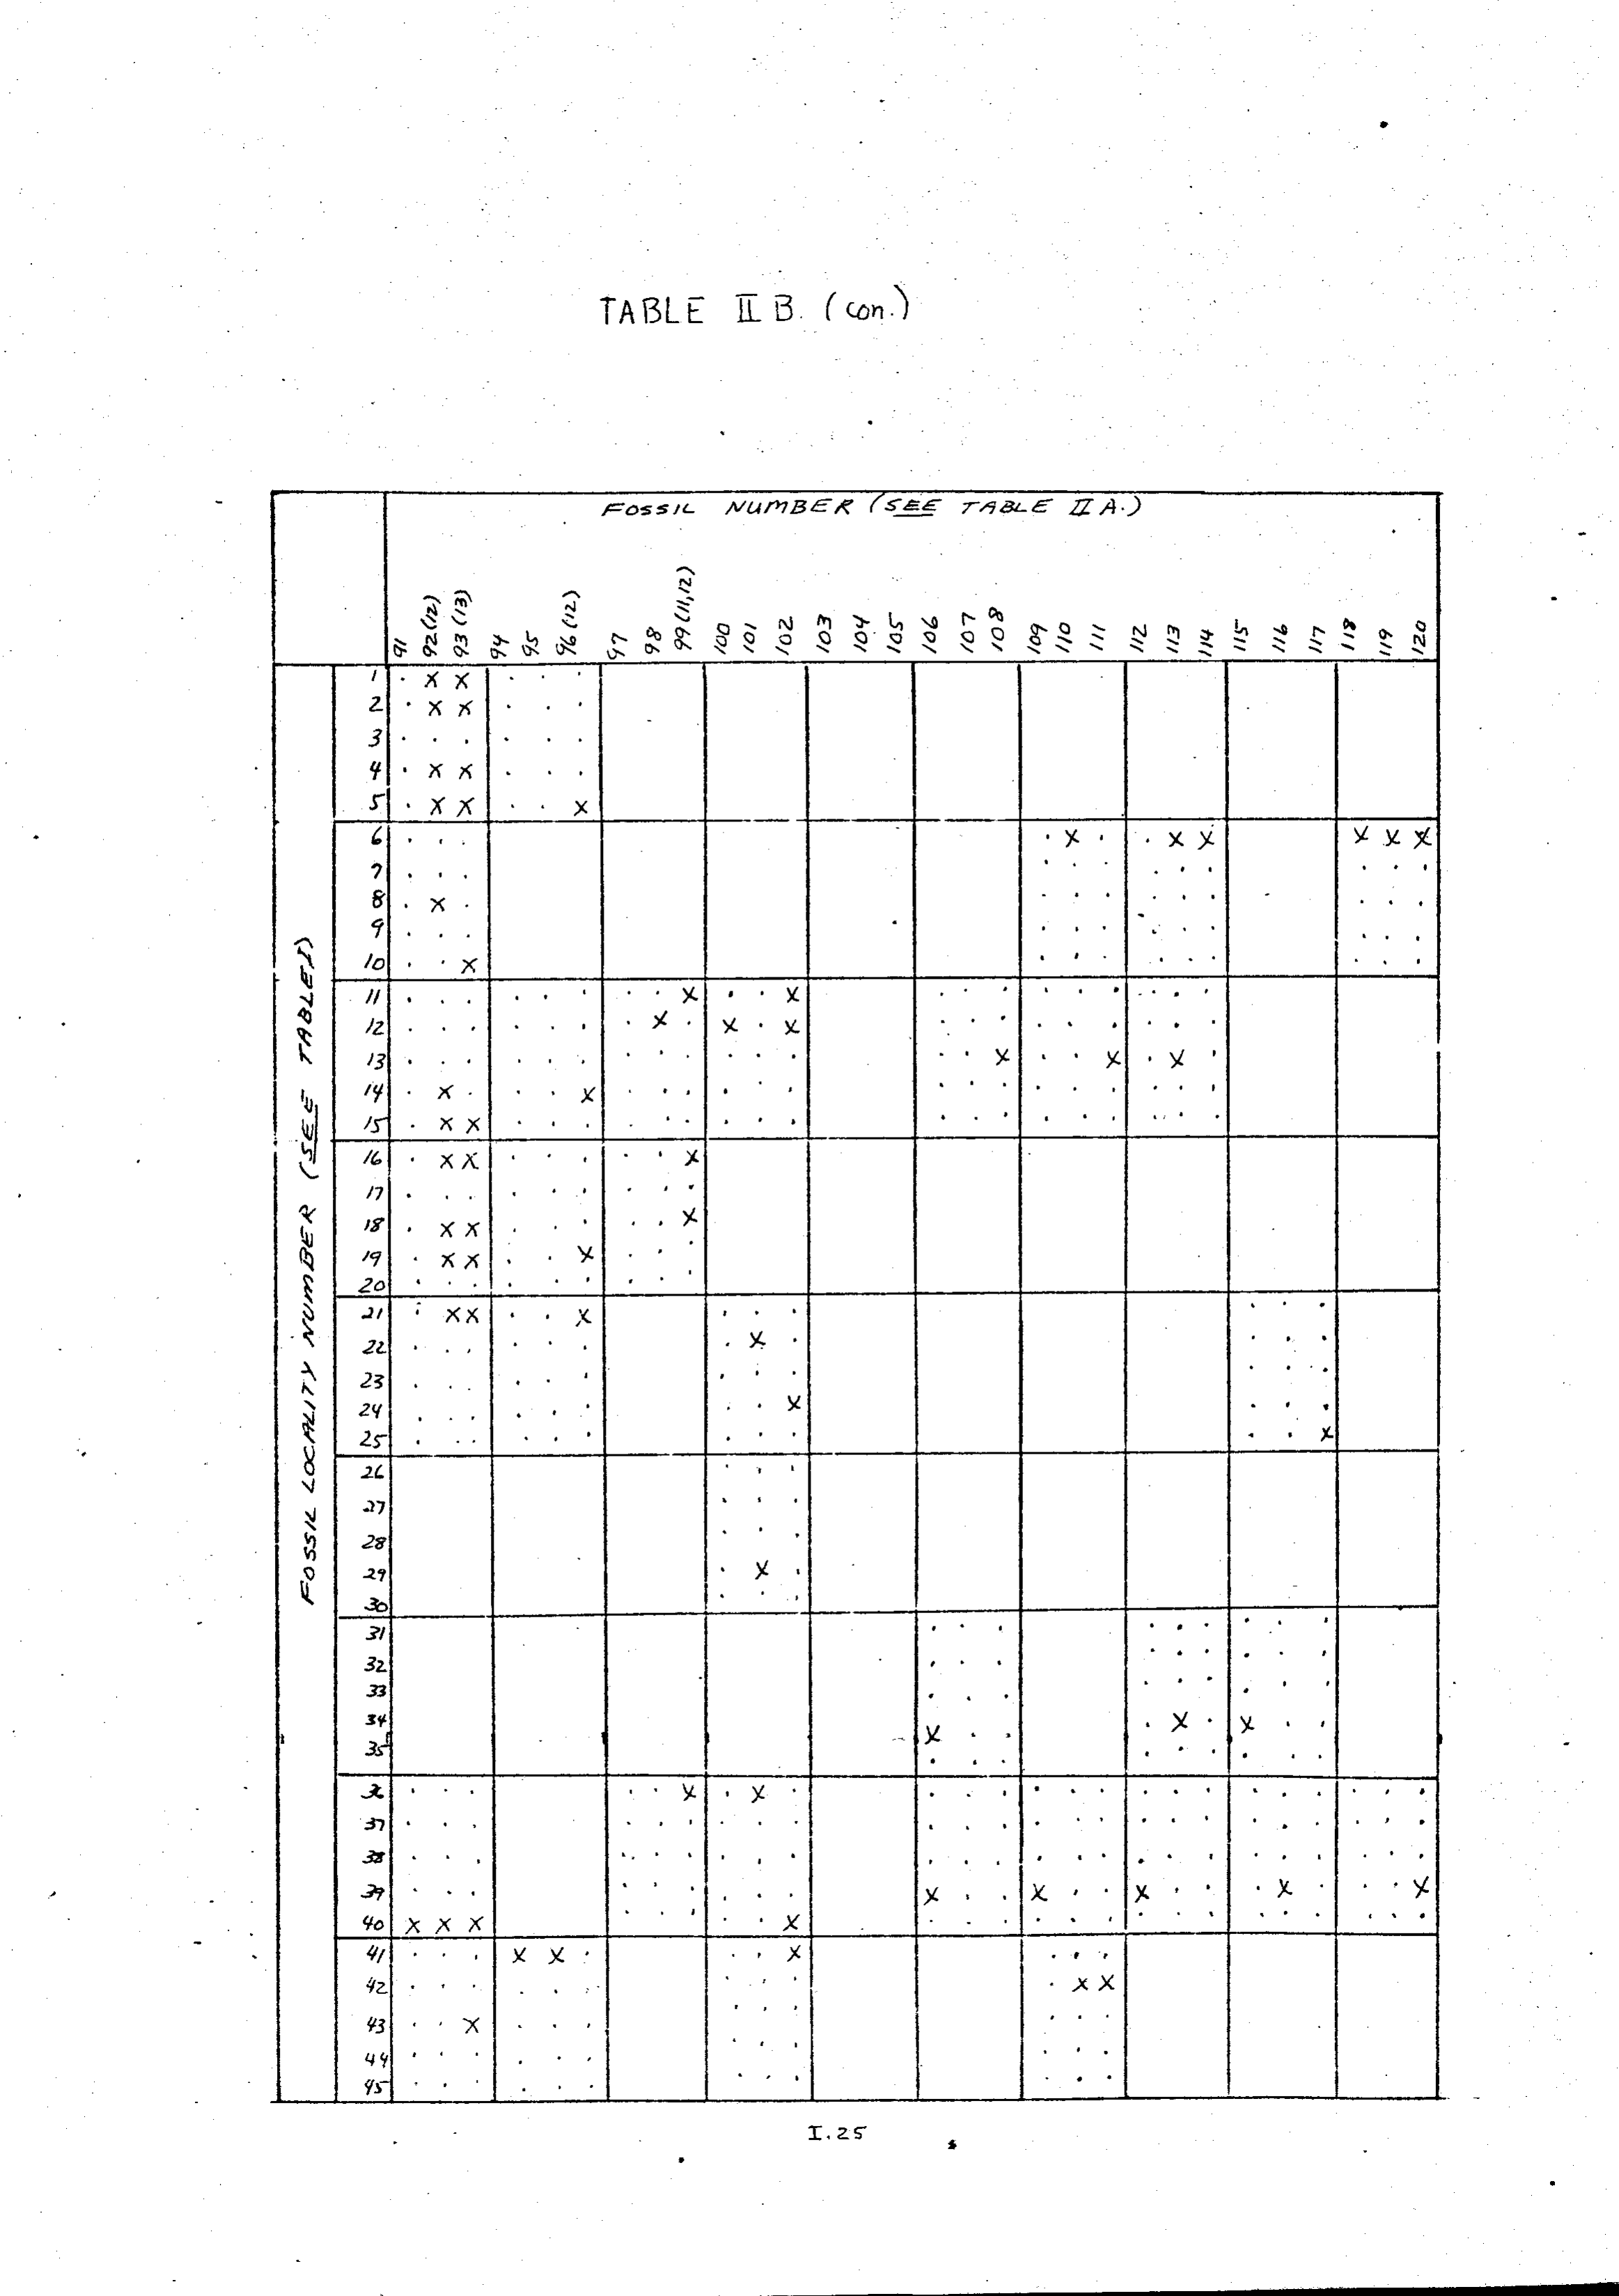 TABLE II B. (con.)
FOSSIL NUMBER (SEE TABLE II A.)
91 92(12) 93(13) 94 95 96(12) 97 98 99(11,12) 100 101 102 103 104 105 106 107 108 109 110 111 112 113 114 115 116 117 118 119 120
FOSSIL LOCALITY NUMBER (SEE TABLE I)
1 . X X . . .
2 . X X . . .
3 . . . . . .
4 . X X . . .
5 . X X . . X
6 . . . . X . . X X X X X
7 . . . . . . . . . . . .
8 . X . . . . . . . . . .
9 . . . . . . . . . . . .
10 . . X . . . . . . . . .
11 . . . . . . . . X . . X . . . . . . . . .
12 . . . . . . . X . X . X . . . . . . . . .
13 . . . . . . . . . . . . . . X . . X . X .
14 . X . . . X . . . . . . . . . . . . . . .
15 . X X . . . . . . . . . . . . . . . . . .
16 . X X . . . . . X
17 . . . . . . . . .
18 . X X . . . . . X
19 . X X . . X . . .
20 . . . . . . . . .
21 . X X . . X . . . . . .
22 . . . . . . . X . . . .
23 . . . . . . . . . . . .
24 . . . . . . . . X . . .
25 . . . . . . . . . . . X
26 . . .
27 . . .
28 . . .
29 . X .
30 . . .
31 . . . . . . . . .
32 . . . . . . . . .
33 . . . . . . . . .
34 X . . . X . X . .
35 . . . . . . . . .
36 . . . . . X . X . . . . . . . . . . . . . . . .
37 . . . . . . . . . . . . . . . . . . . . . . . .
38 . . . . . . . . . . . . . . . . . . . . . . . .
39 . . . . . . . . . X . . X . . X . . . X . . . X
40 X X X . . . . . X . . . . . . . . . . . . . . .
41 . . . X X . . . X . . .
42 . . . . . . . . . . X X
43 . . X . . . . . . . . .
44 . . . . . . . . . . . .
45 . . . . . . . . . . . .
I.25